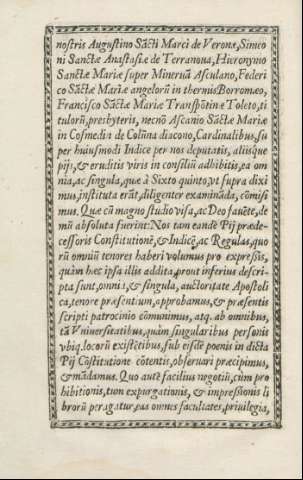 nostris Augustino Sãcti Marci de Veronæ, Simeo
ni Sanctæ Anastasiæ de Terranoua, Hieronymo
Sanctæ Mariæ super Mineruã Asculano, Federi
co Sãctæ Mariæ angelorũ in thermis Borromæo,
Francisco Sãctæ Mariæ Transpõtinæ Toleto, ti
tulorũ, presbyteris, necnõ Ascanio Sãctæ Mariæ
in Cosmedin de Colũna diacono, Cardinalibus, su
per huiusmodi Indice per nos deputatis, aliisque
pijs, & eruditis viris in consiliũ adhibitis, ea om
nia, ac singula, quæ à Sixto quinto, vt supra dixi
mus, instituta erãt, diligenter examinãda, cõmisi
mus. Quæ cũ magno studio visa, ac Deo fauẽte, de
mũ absoluta fuerint: Nos tam eandẽ Pij præde-
cessoris Constitutionẽ, & Indicẽ, ac Regulas, quo
rũ omniũ tenores haberi volumus pro expressis,
quàm hæc ipsa illis addita, prout inferius descri-
pta sunt, omnia, & singula, auctoritate Apostoli
ca, tenore præsentium, approbamus, & præsentis
scripti patrocinio cõmunimus, atq. ab omnibus,
tã Vniuersitatibus, quàm singularibus personis
vbiq. locorũ existẽtibus, sub eisdẽ poenis in dicta
Pij Cõstitutione cõtentis, obseruari præcipimus,
& mãdamus. Quo autẽ facilius negotiũ, cùm pro
hibitionis, tum expurgationis, & impressionis li
brorũ peragatur, eas omnes facultates, priuilegia,